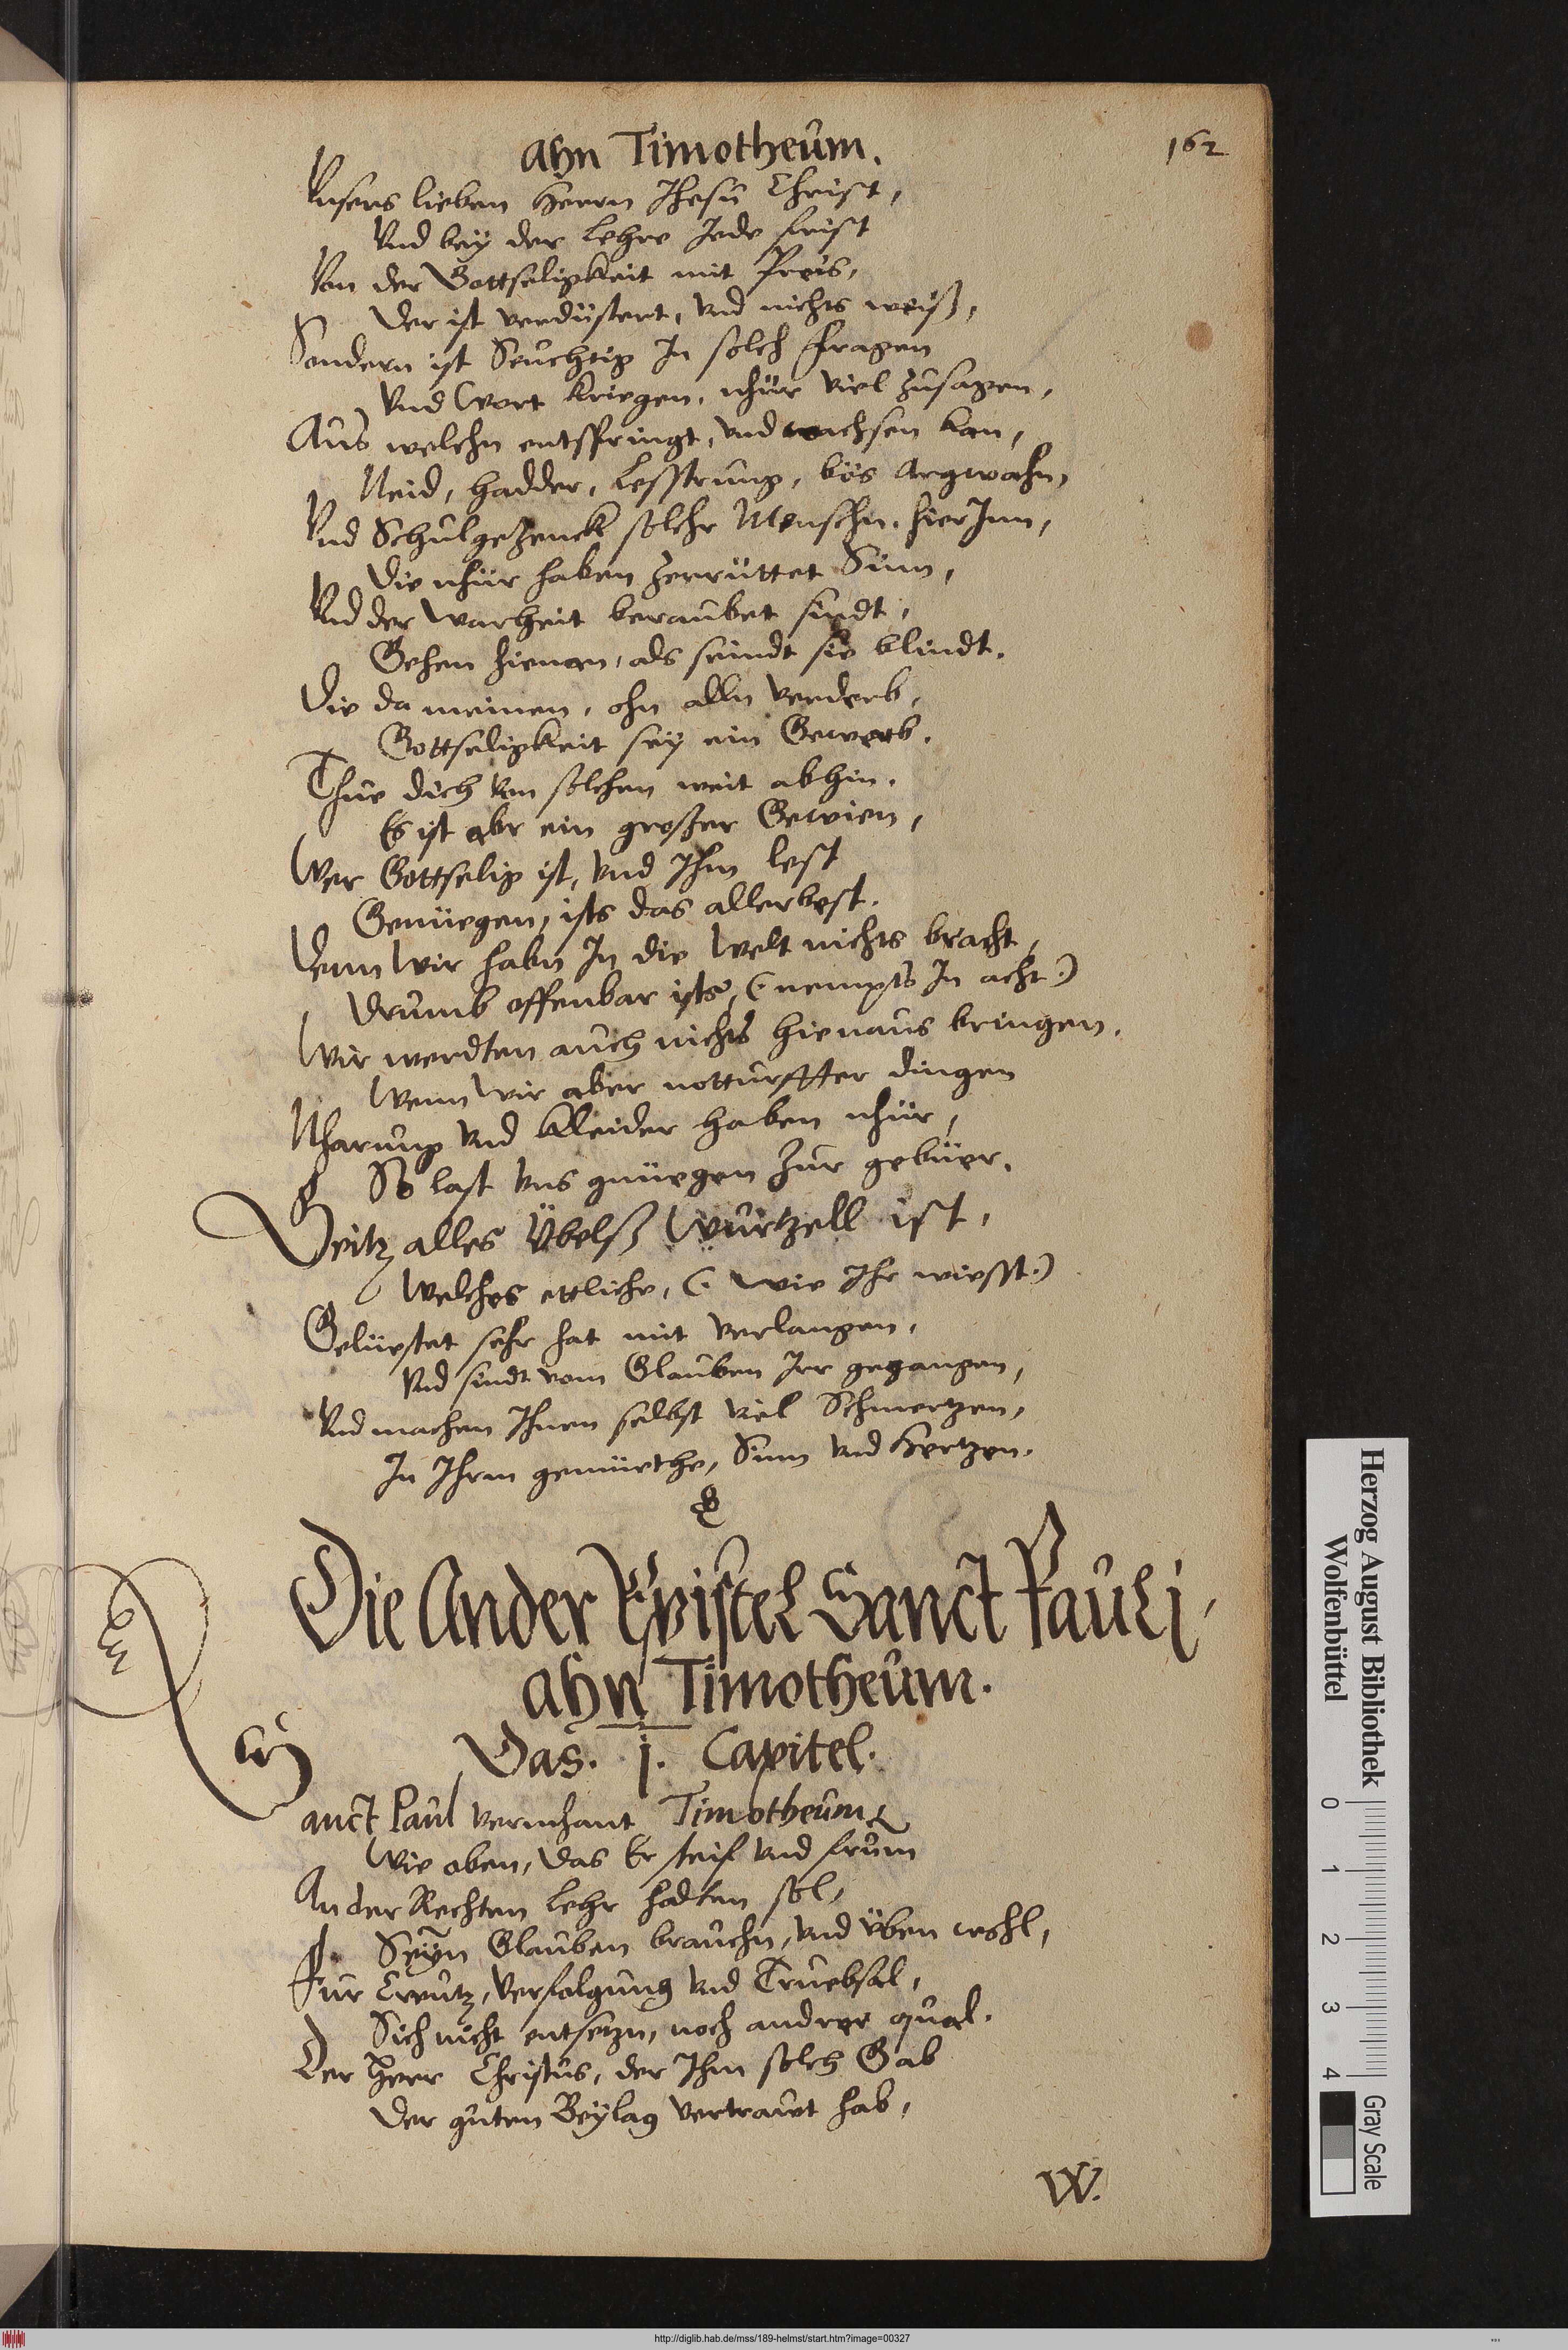 ahn Timotheum.
162
Vnsers lieben Herrn Jhesu Christ,
Vnd bey der Lehre Jede frist
Von der Gottseligkeit mit Preis,
Der ist verdüstert, vnd nichts weiß,
Sondern ist Seuchtig Jn solch fragen
Vnd Wort kriegen, nhur viel zusagen,
Aus welchn entspringt, vnd wachsen kan,
Neid, hadder, Lesstrung, bös Argwohn,
Vnd Schulgezenck solchr Menschn hierJnn,
Die nhür haben Zerrüttet Sinn,
Vnd der Warheit beraubet sindt,
Gehen hienan, als seindt sie blindt.
Die da meinen, ohn alln verderb,
Gottseligkeit sey ein Gewerb.
Thue dich von solchen weit abhin.
Es ist abr ein großer Gewien,
Wer Gottselig ist, vnd Jhm lest
Genüegen, ists das allerbest.
Denn Wir habn Jn die Welt nichts bracht,
Drumb offenbar ists, (nempts Jn acht)
Wir werdten auch nichts hienaus bringen.
Wenn Wir aber notturffter dingen
Nharung vnd Kleider haben nhür,
So last vns gnüegen zur gebüer.
Geitz alles Übelß Würtzell ist,
Welches ettliche, (wie Jhr wiesst)
Gelüestet sehr hat mit verlangen,
Vnd sindt vom Glauben Jrr gegangen,
Vnd machen Jhnen selbst viel Schmertzen,
Jn Jhrm gemüethe, Sinn vnd Hertzen.
Die Ander Epistel Sanct Pauli
ahn Timotheum.
Das. j. Capitel.
Sanct Paul vermhant Timotheum
Wie oben, das Er steif vnd frum
An der Rechten Lehr haldten sol,
Seyn Glauben brauchn, vnd Üben wohl,
Fur Creutz, Verfolgung vnd Truebsal,
Sich nicht entsetzn, noch andrer qual.
Der Herr Christus, der Jhm solch Gab
Der guten Beylag vertrawt hab,
W.
Herzog August Bibliothek
Wolfenbüttel
0 1 2 3 4
Gray Scale
http://diglib.hab.de/mss/189-helmst/start.htm?image=00327